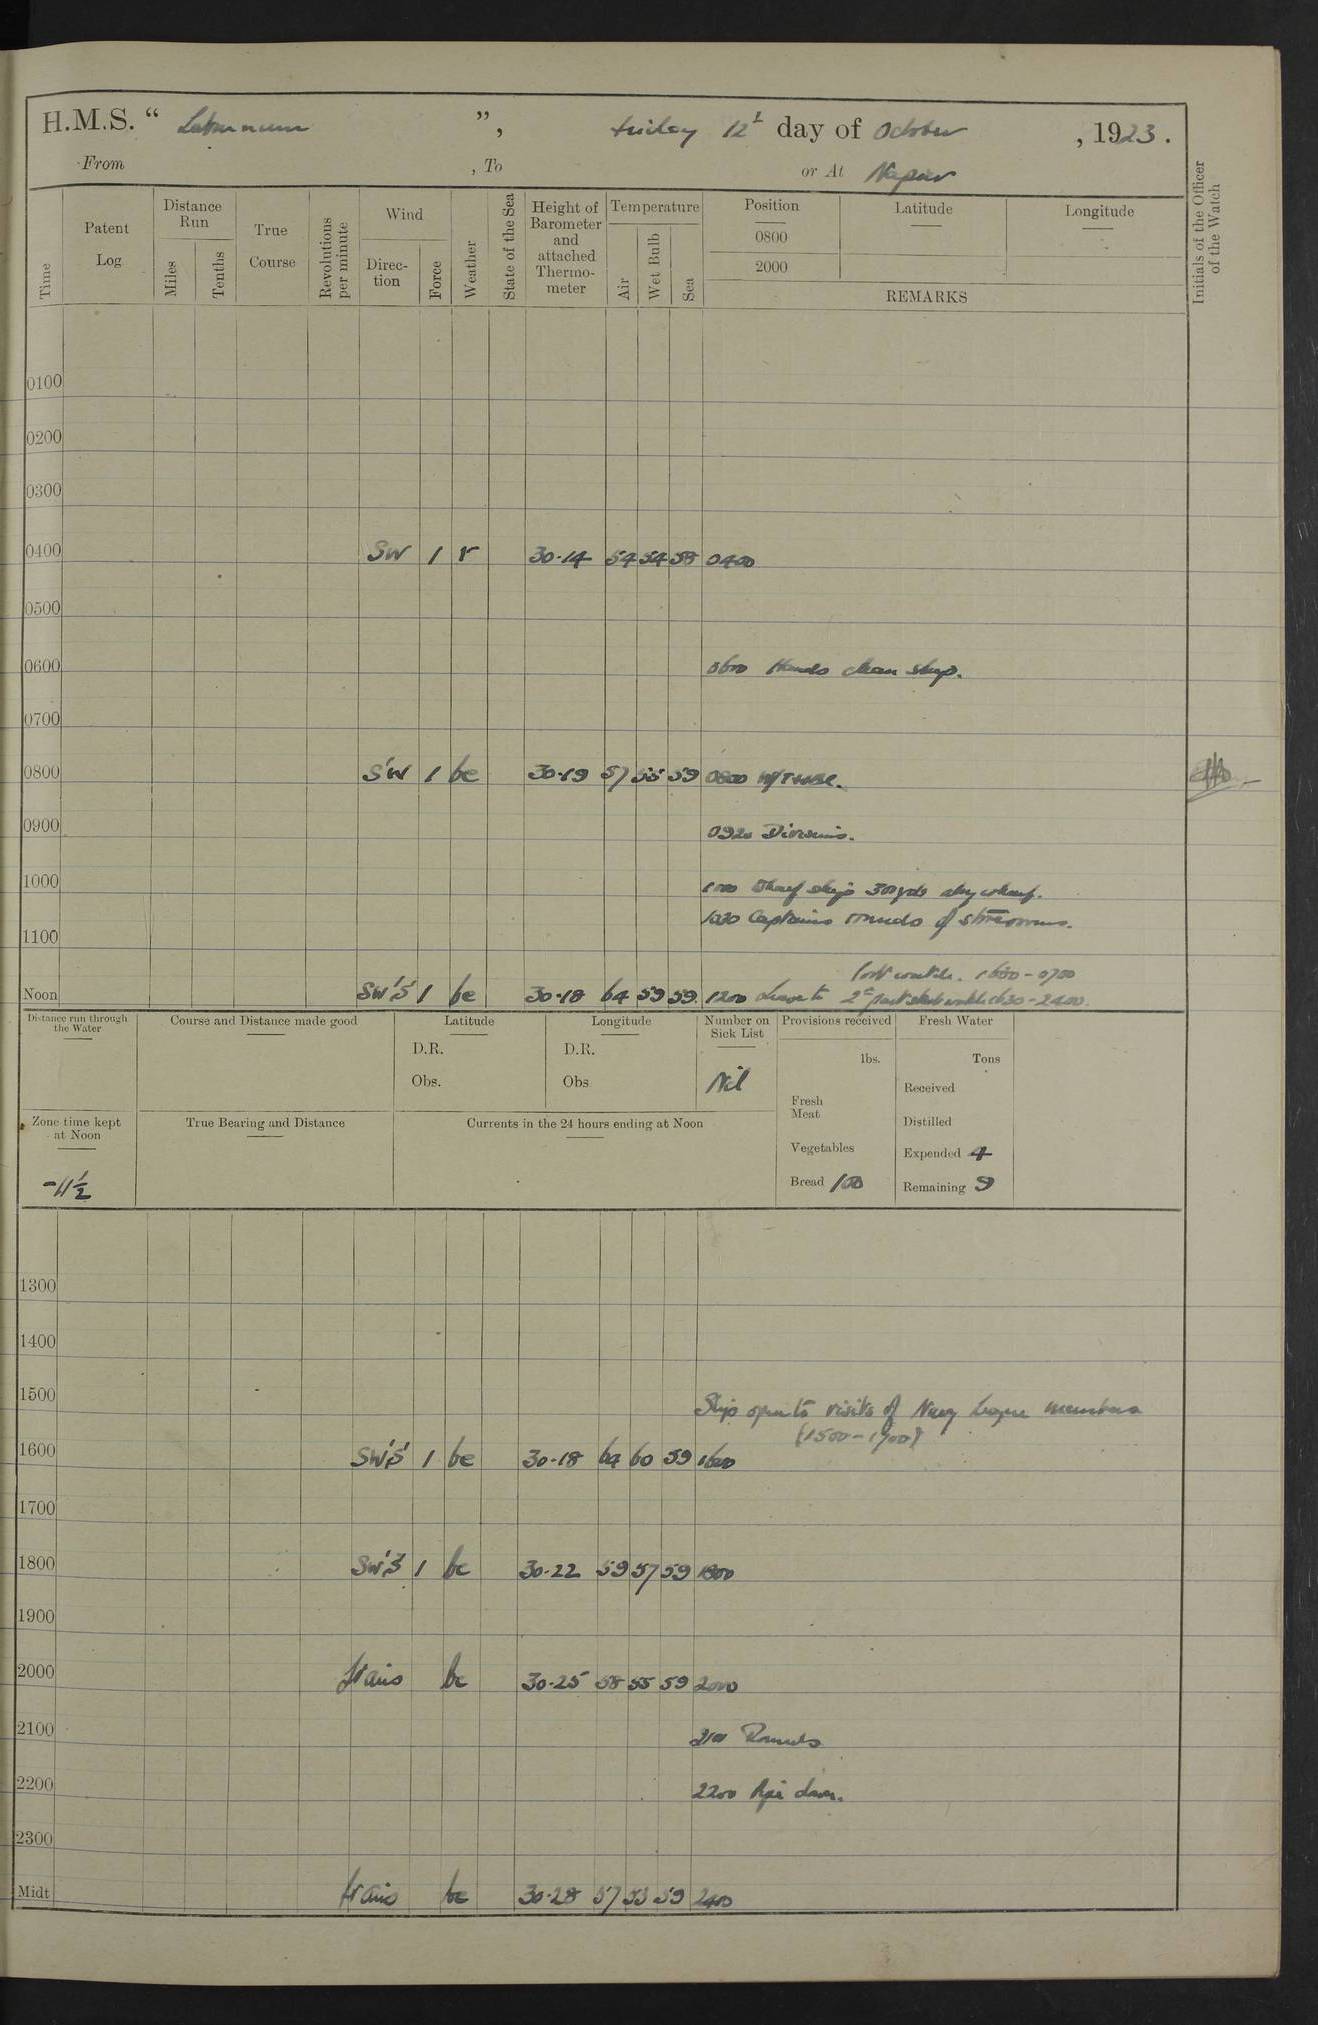 H.M.S. “ Laburnum ”, Friday 12th day of October , 1923.
From , To or At Napier
Time
Patent Log
Distance Run
Miles
Tenths
True Course
Revolutions per minute
Wind
Direc-tion
Force
Weather
State of the Sea
Height of Barometer and attached Thermo-meter
Temperature
Air
Wet Bulb
Sea
Position
0800
2000
Latitude
Longitude
REMARKS
Initials of the Officer of the Watch
0100
0200
0300
0400 SW 1 r 30.14 54 54 58 0400
0500
0600 0600 Hands clean ship.
0700
0800 S'W 1 bc 30.19 57 55 59 0800
0900 0920 Divisions.
1000 1000 ship 300 yds along wharf.
1030 Captains rounds of storerooms.
1100
Port watch. 1630-0700
Noon SW'S' 1 bc 30.18 64 59 59 1200 Leave to 2nd part stbd watch 1630-2400.
Distance run through the Water
Course and Distance made good
Latitude
D.R.
Obs.
Longitude
D.R.
Obs
Number on Sick List
Nil
Provisions received
lbs.
Fresh Meat
Vegetables
Bread 100
Fresh Water
Tons
Received
Distilled
Expended 4
Remaining 9
Zone time kept at Noon
-11½
True Bearing and Distance
Currents in the 24 hours ending at Noon
1300
1400
1500 Ship open to visits of Navy League members
(1500-1700)
1600 SW'S' 1 bc 30.18 64 60 59 1600
1700
1800 SW'S' 1 bc 30.22 59 57 59 1800
1900
2000 bc 30.25 58 55 59 2000
2100 2100 Rounds
2200 2200 Pipe down.
2300
Midt bc 30.28 57 53 59 2400